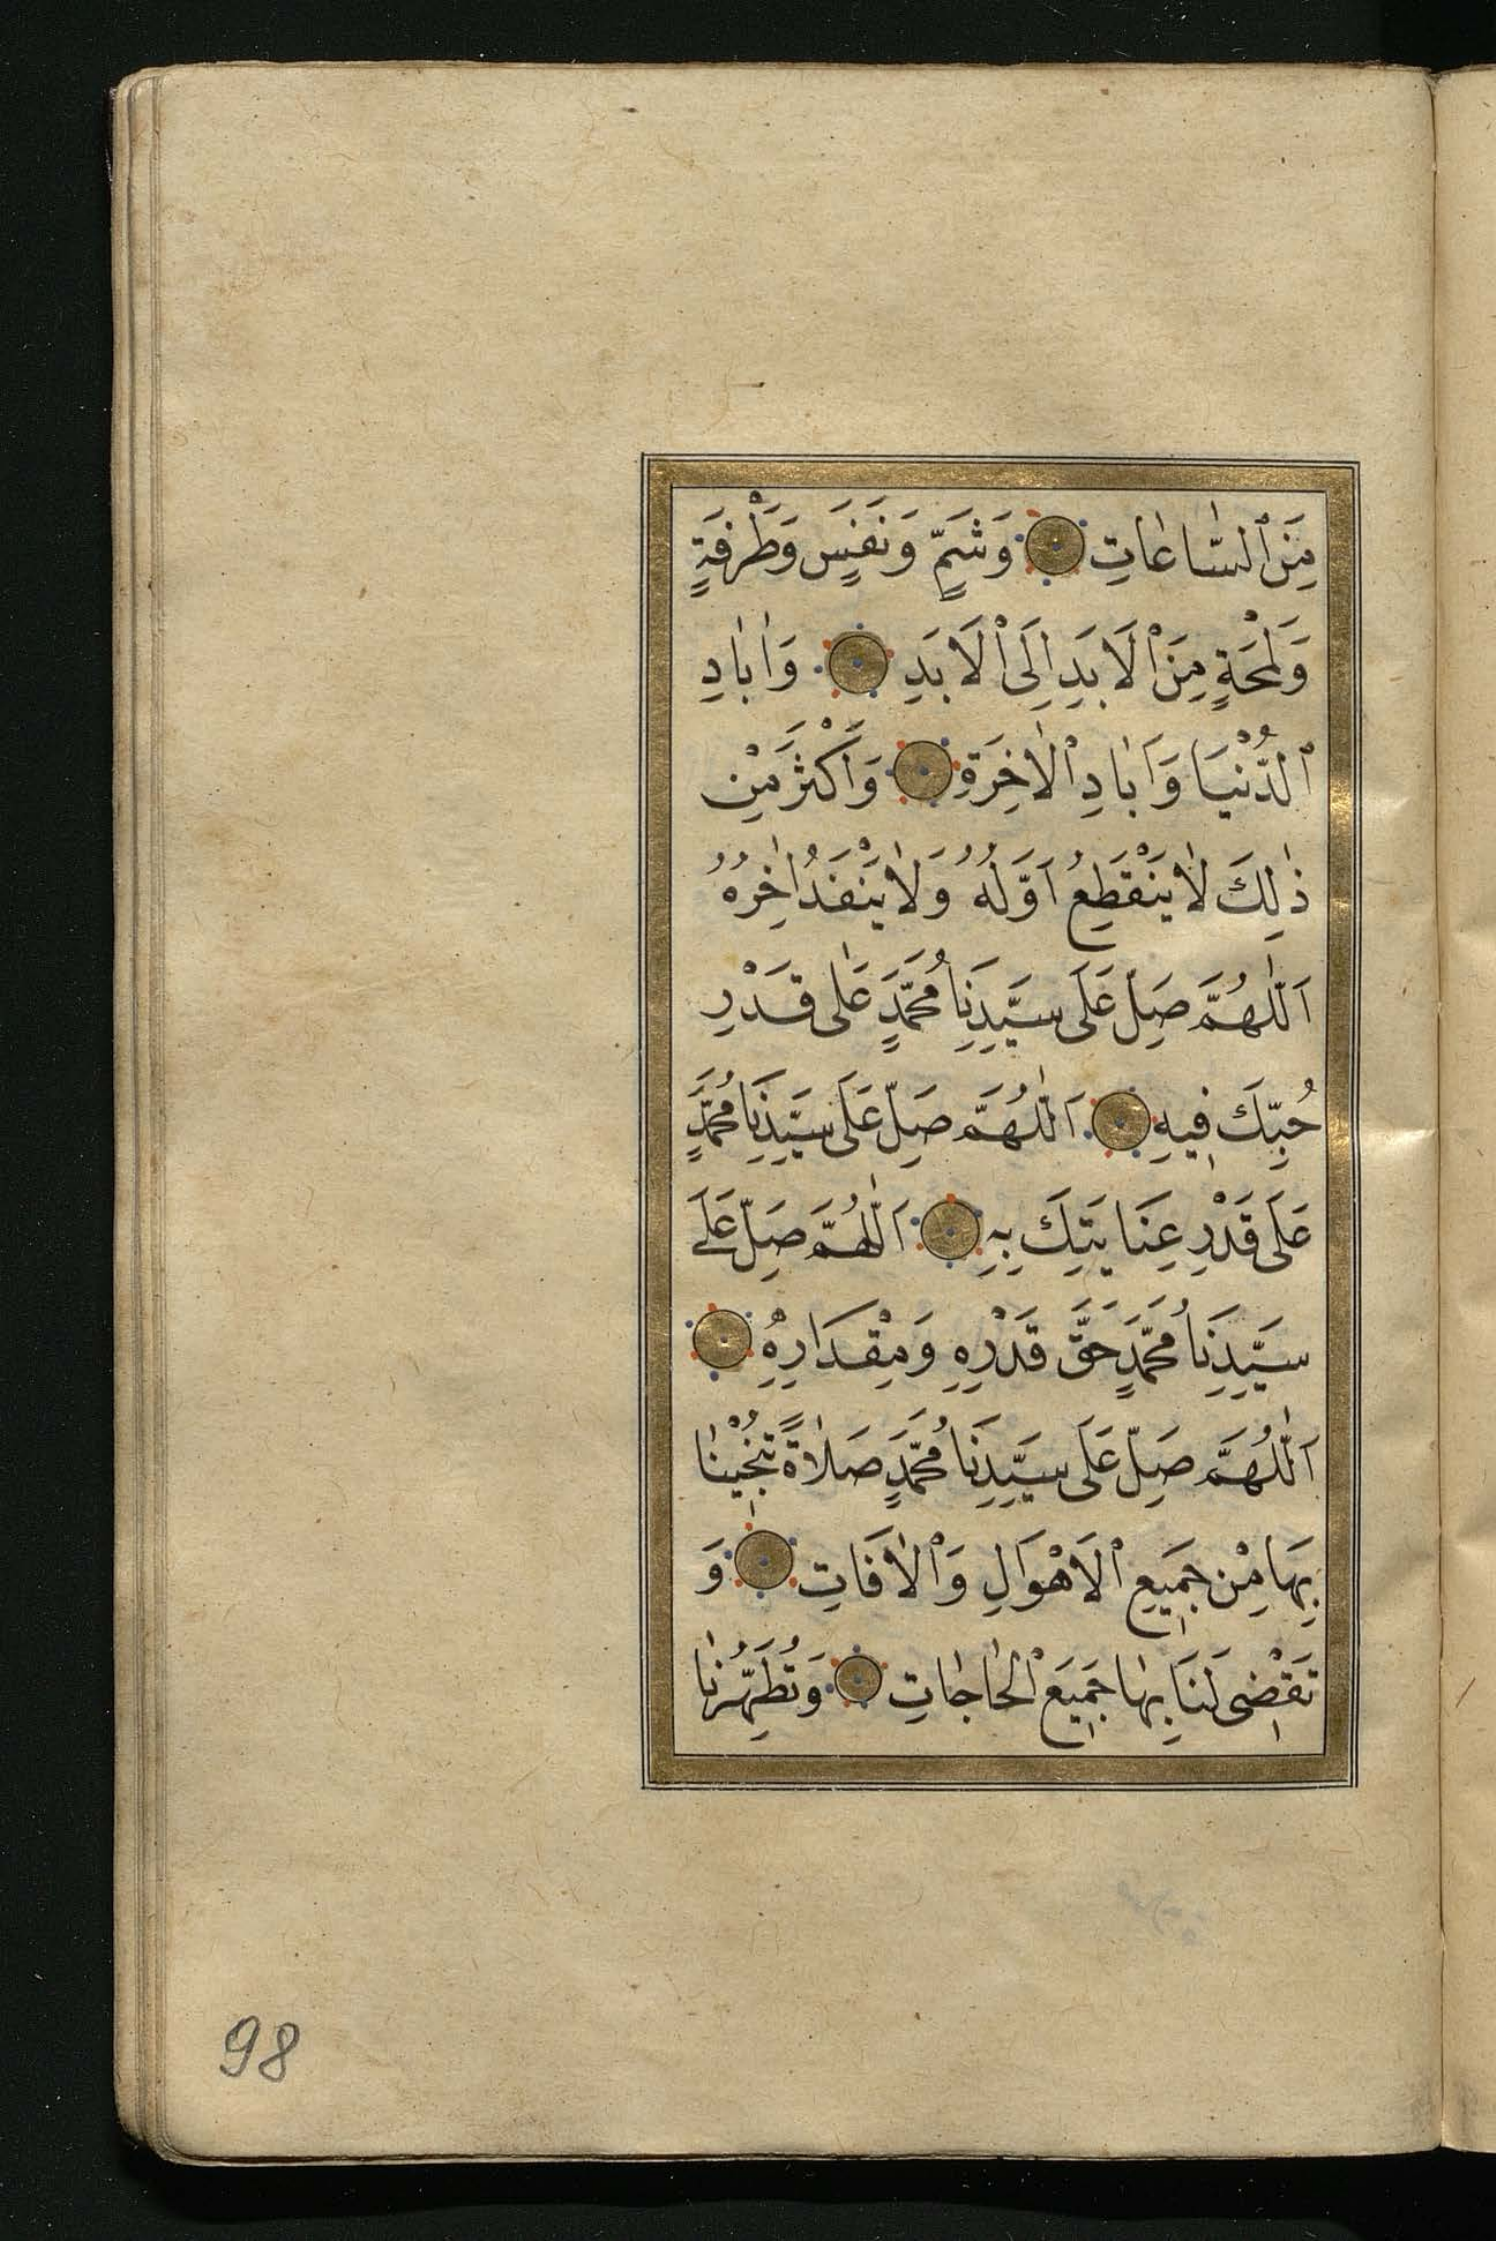 مِنَ ٱلسَّاعَاتِ وَشَمٍّ وَنَفَسٍ وَطَرْفَةٍ
وَلَمْحَةٍ مِنَ ٱلْاَبَدِ اِلَى ٱلْاَبَدِ وَاٰبَادِ
ٱلدُّنْيَا وَاٰبَادِ ٱلْاٰخِرَةِ وَاَكْثَرَ مِنْ
ذٰلِكَ لَا يَنْقَطِعُ اَوَّلُهُ وَلَا يَنْفَدُ اٰخِرُهُ
اَللّٰهُمَّ صَلِّ عَلَى سَيِّدِنَا مُحَمَّدٍ عَلَى قَدْرِ
حُبِّكَ فِيهِ اَللّٰهُمَّ صَلِّ عَلَى سَيِّدِنَا مُحَمَّدٍ
عَلَى قَدْرِ عِنَايَتِكَ بِهِ اَللّٰهُمَّ صَلِّ عَلَى
سَيِّدِنَا مُحَمَّدٍ حَقَّ قَدْرِهِ وَمِقْدَارِهِ
اَللّٰهُمَّ صَلِّ عَلَى سَيِّدِنَا مُحَمَّدٍ صَلَاةً تُنْجِينَا
بِهَا مِنْ جَمِيعِ ٱلْاَهْوَالِ وَٱلْاٰفَاتِ وَ
تَقْضِى لَنَا بِهَا جَمِيعَ ٱلْحَاجَاتِ وَتُطَهِّرُنَا
98